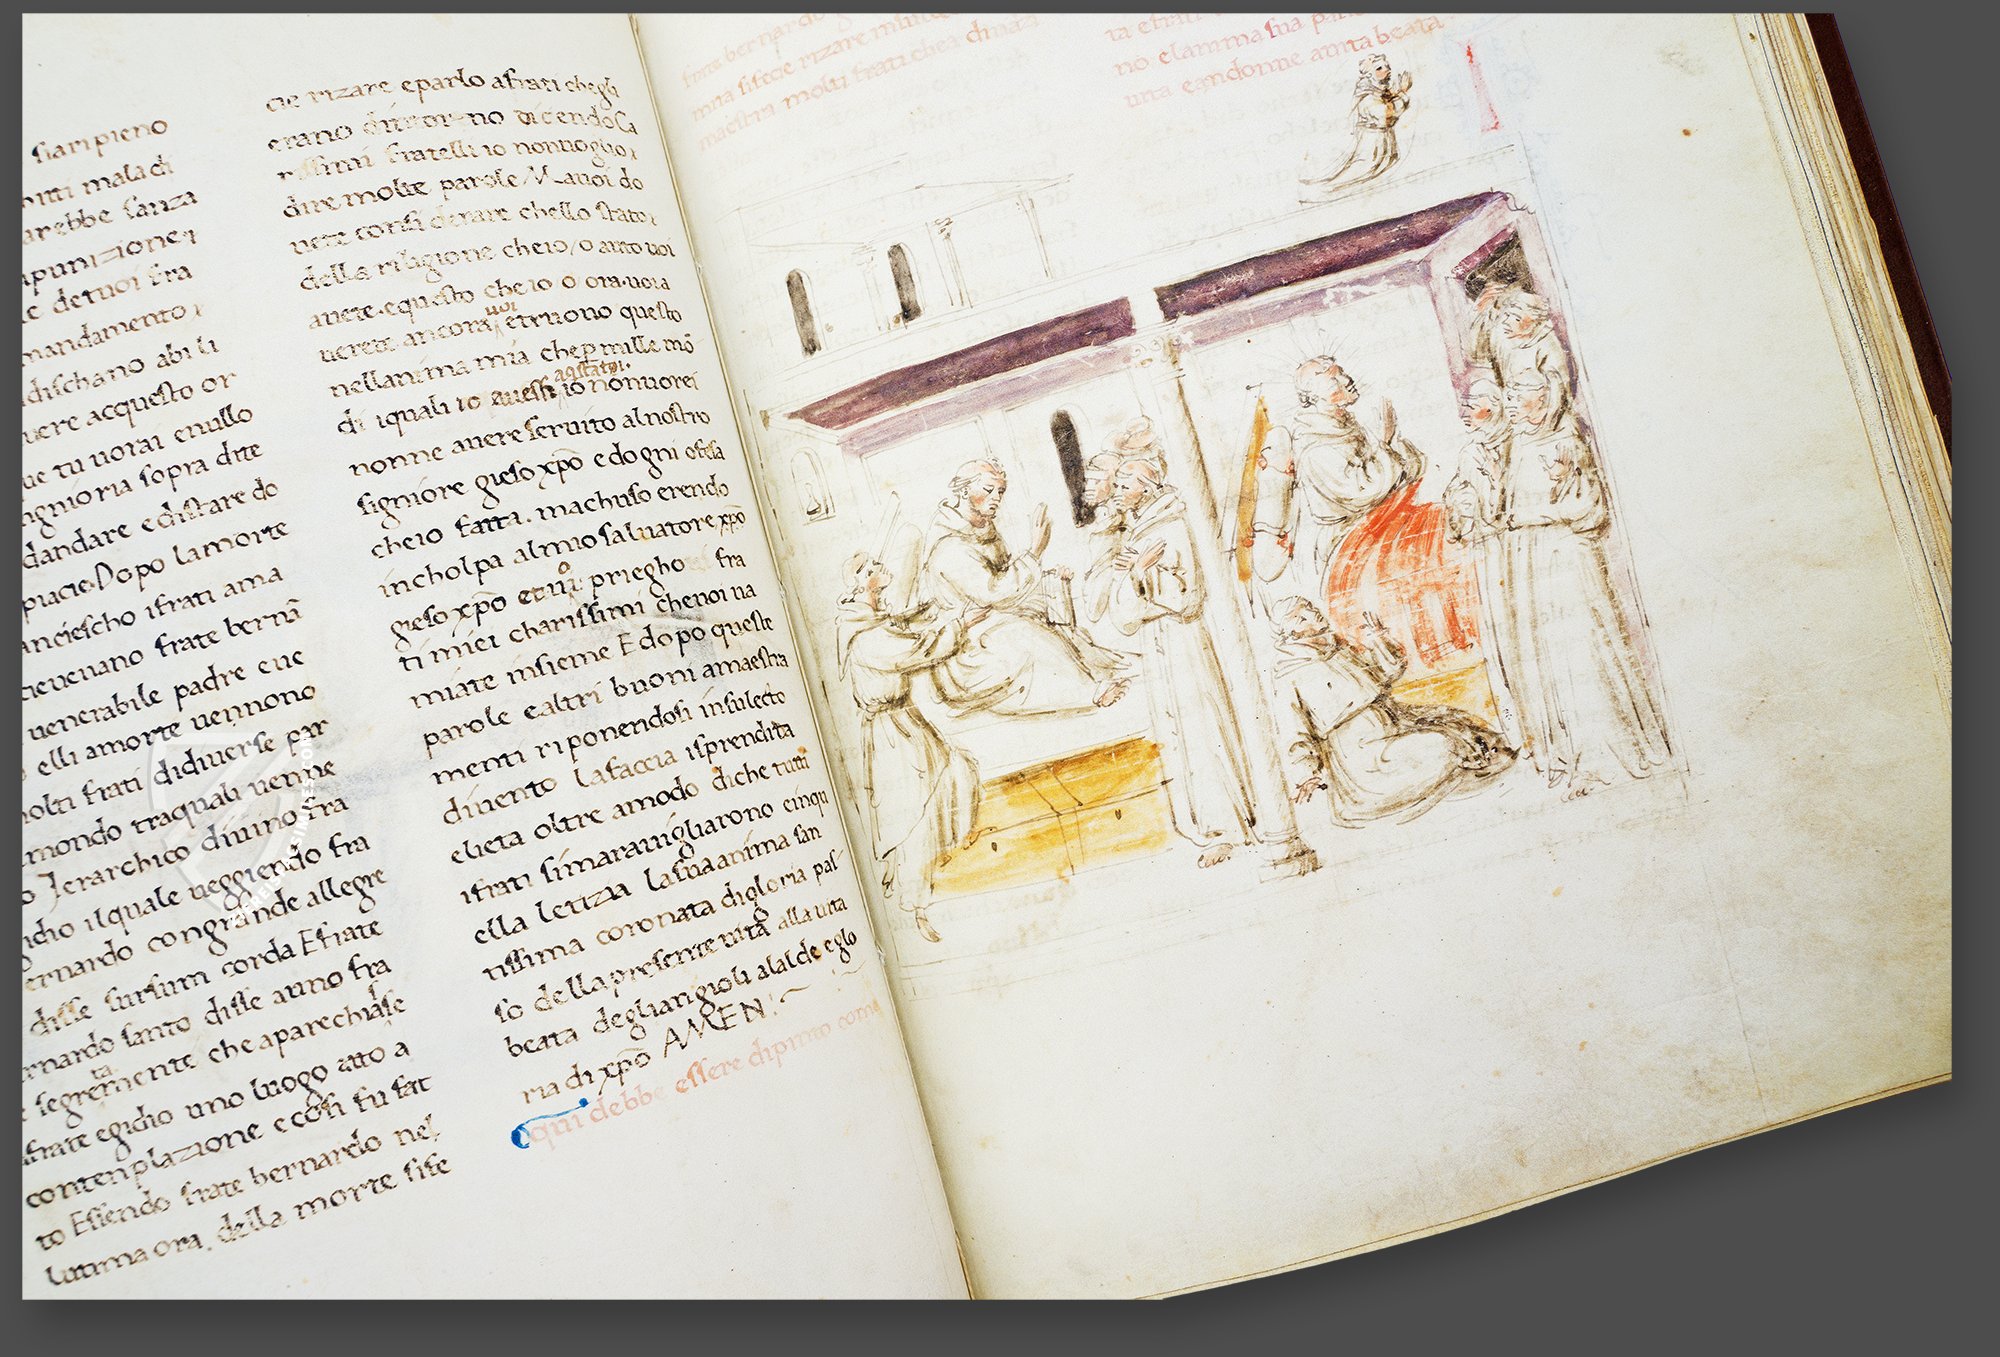 siari pieno
nti maladi
arebbe sanza
punizione
e detuoi fra
mandamento
dischano abili
uere acquesto or
ue tu uorai enullo
ngnioria sopra dite
dandare edistare do
piacie Dopo lamorte
anciescho ifrati ama
ieuenano frate bernā
uenerabile padre eue
elli amorte uennono
molti frati didiuerse par
mondo traquali uenne
o Jerarchico diuino fra
idio ilquale ueggiendo fra
ernardo congrande allegre
disse sursum corda Efrate
ernardo santo disse anno fra
segretamente che aparechiasse
afrate egidio uno luogo atto a
contenplazione ecosi fu fat
to Essendo frate bernardo nel
lutima ora della morte sife
cie rizare eparlo afrati chegli
erano dintorno dicendo Ca
rissimi fratelli io nonuoglio
dire molte parole Mauoi do
uete considerare chello stato
della riligione cheio o auto uoi
auete equesto cheio o ora uoi a
uerete ancora uoi etruono questo
nellanima mia cheᵽ mille mō
di iquali io aquistassi io nonuorei
nonne auere seruito alnostro
signiore gieso xp̄o edogni ofesa
cheio fatta machuso erendo
incholpa almio saluatore xp̄o
gieso xp̄o etuoi priegho fra
ti miei charissimi chenoi ua
miate insieme Edopo queste
parole ealtri buoni amaestra
menti riponendosi insulecto
diuento lafaccia isprendita
elieta oltre amodo diche tutti
ifrati simarauigliarono einqu
ella letizia lasua anima san
tissima coronata digloria pas
so della presente uita alla uita
beata degliangioli alalde eglo
ria di xp̄o AMEN
qui debbe essere dipinto come
frate bernardo
mina sifecie rizare
maestra molti frati chea dinā
ta efrati
no elamma sua par
una eandonne auita beata